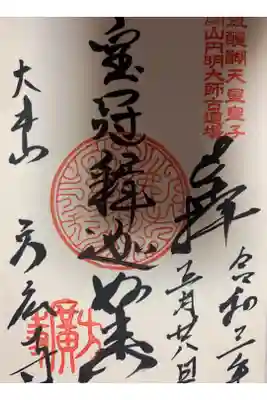 後醍醐天皇皇子
開山円明大師古道場
奉拝
令和三年
五月廿八日
寶冠釋迦如来
大本山
方広寺